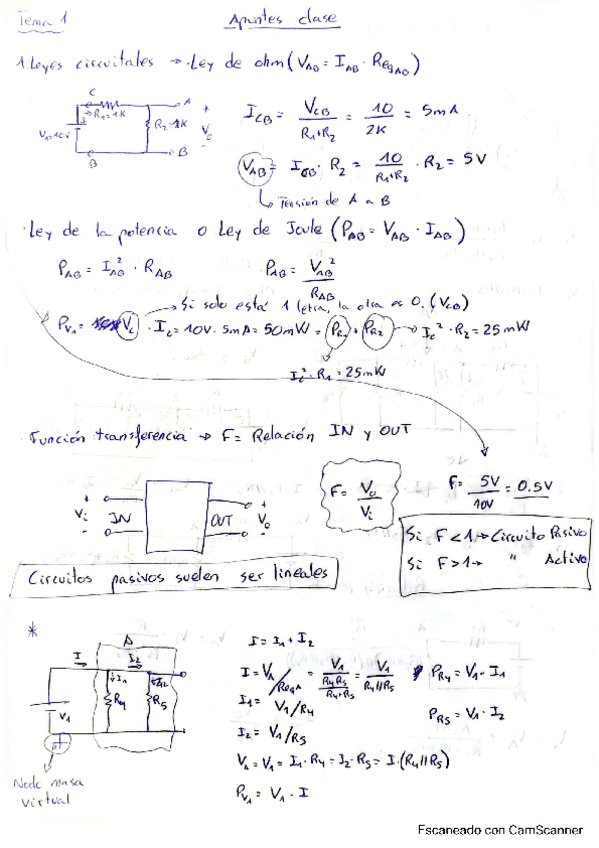 Tema 1
Apuntes clase
1. Leyes circuitales → Ley de ohm (V_AB = I_AB · Req_AB)
C
A
+
R₁=1K
V₁=10V
R₂=1K
V₀
-
B
B
I_CB = V_CB / (R₁+R₂) = 10 / 2K = 5mA
V_AB = I_CB · R₂ = 10 / (R₁+R₂) · R₂ = 5V
↳ Tensión de A a B
· Ley de la potencia o Ley de Joule (P_AB = V_AB · I_AB)
P_AB = I_AB² · R_AB
P_AB = V_AB² / R_AB
→ Si solo está 1 letra, la otra es 0. (V_CB)
P_V₁ = V_C · I_C = 10V · 5mA = 50mW = P_R₁ + P_R₂ → I_C² · R₂ = 25mW
I_C² · R₁ = 25mW
· Función transferencia → F = Relación IN y OUT
+
Vi
-
IN
OUT
+
V₀
-
F = V₀ / Vi
F = 5V / 10V = 0.5V
Si F < 1 → Circuito Pasivo
Si F > 1 → " Activo
Circuitos pasivos suelen ser lineales
*
A
I
I₂
I₁
I₂
R₄
R₅
V₁
Nodo masa
virtual
I = I₁ + I₂
I = V₁ / Req_A = V₁ / (R₄R₅ / (R₄+R₅)) = V₁ / (R₄//R₅)
I₁ = V₁/R₄
I₂ = V₁/R₅
V_A = V₁ = I₁ · R₄ = I₂ · R₅ = I · (R₄//R₅)
P_V₁ = V₁ · I
P_R₄ = V₁ · I₁
P_R₅ = V₁ · I₂
Escaneado con CamScanner